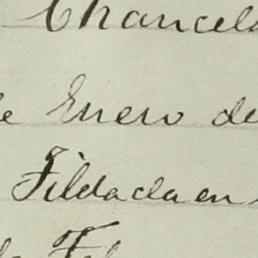 Chancela
de Enero de
Fildada en
de Feb